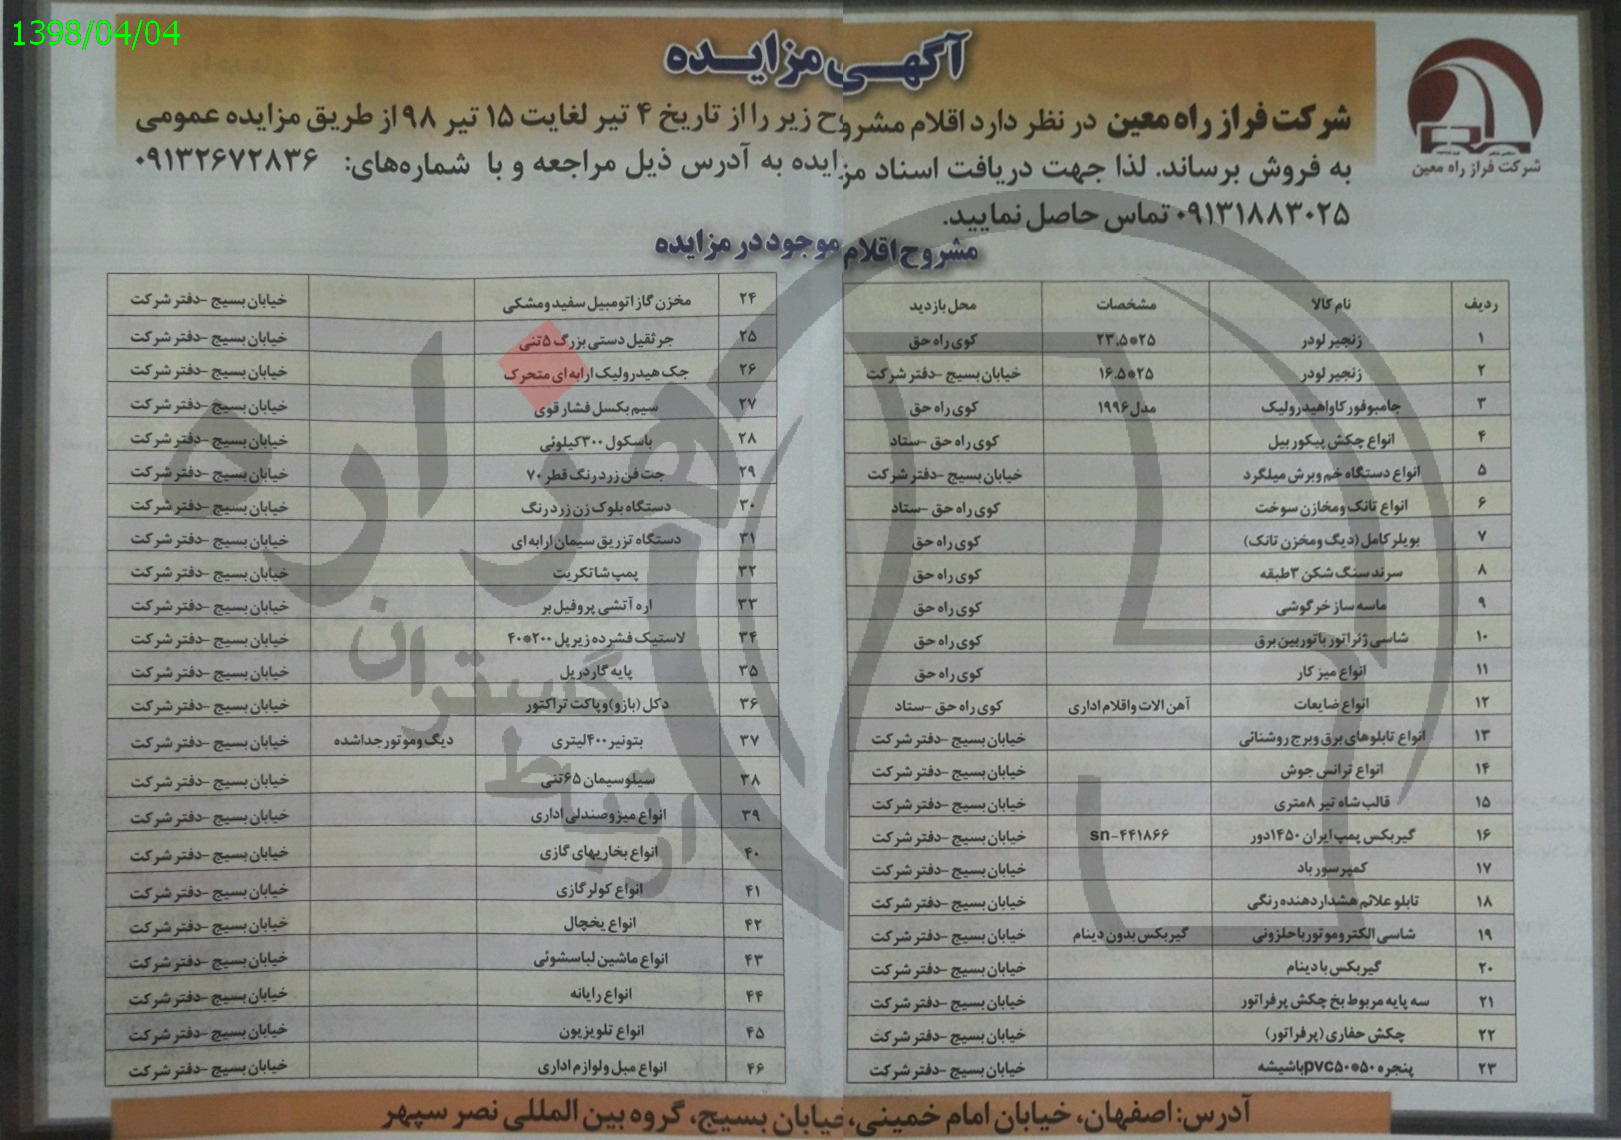 1398/04/04
آگهی مزایده
شرکت فراز راه معین
شرکت فراز راه معین در نظر دارد اقلام مشروح زیر را از تاریخ ۴ تیر لغایت ۱۵ تیر ۹۸ از طریق مزایده عمومی
به فروش برساند. لذا جهت دریافت اسناد مزایده به آدرس ذیل مراجعه و با شماره‌های: ۰۹۱۳۲۶۷۲۸۳۶
۰۹۱۳۱۸۸۳۰۲۵ تماس حاصل نمایید.
مشروح اقلام موجود در مزایده
ردیف نام کالا مشخصات محل بازدید
۱ زنجیر لودر ۲۳.۵*۲۵ کوی راه حق
۲ زنجیر لودر ۱۶.۵*۲۵ خیابان بسیج -دفتر شرکت
۳ جامبوفور کاواهیدرولیک مدل ۱۹۹۶ کوی راه حق
۴ انواع چکش پیکور بیل کوی راه حق -ستاد
۵ انواع دستگاه خم وبرش میلگرد خیابان بسیج -دفتر شرکت
۶ انواع تانک ومخازن سوخت کوی راه حق -ستاد
۷ بویلر کامل (دیگ ومخزن تانک) کوی راه حق
۸ سرند سنگ شکن ۳طبقه کوی راه حق
۹ ماسه ساز خرگوشی کوی راه حق
۱۰ شاسی ژنراتور باتوربین برق کوی راه حق
۱۱ انواع میز کار کوی راه حق
۱۲ انواع ضایعات آهن الات واقلام اداری کوی راه حق -ستاد
۱۳ انواع تابلوهای برق وبرج روشنائی خیابان بسیج -دفتر شرکت
۱۴ انواع ترانس جوش خیابان بسیج -دفتر شرکت
۱۵ قالب شاه تیر ۸متری خیابان بسیج -دفتر شرکت
۱۶ گیربکس پمپ ایران ۱۴۵۰دور sn-۴۴۱۸۶۶ خیابان بسیج -دفتر شرکت
۱۷ کمپرسور باد خیابان بسیج -دفتر شرکت
۱۸ تابلو علائم هشداردهنده رنگی خیابان بسیج -دفتر شرکت
۱۹ شاسی الکتروموتور باحلزونی گیربکس بدون دینام خیابان بسیج -دفتر شرکت
۲۰ گیربکس با دینام خیابان بسیج -دفتر شرکت
۲۱ سه پایه مربوط بخ چکش پرفراتور خیابان بسیج -دفتر شرکت
۲۲ چکش حفاری (پرفراتور) خیابان بسیج -دفتر شرکت
۲۳ پنجره pvc۵۰*۵۰باشیشه خیابان بسیج -دفتر شرکت
۲۴ مخزن گاز اتومبیل سفیدومشکی خیابان بسیج -دفتر شرکت
۲۵ جرثقیل دستی بزرگ ۵تنی خیابان بسیج -دفتر شرکت
۲۶ جک هیدرولیک ارابه ای متحرک خیابان بسیج -دفتر شرکت
۲۷ سیم بکسل فشار قوی خیابان بسیج -دفتر شرکت
۲۸ باسکول ۳۰۰کیلوئی خیابان بسیج -دفتر شرکت
۲۹ جت فن زردرنگ قطر ۷۰ خیابان بسیج -دفتر شرکت
۳۰ دستگاه بلوک زن زردرنگ خیابان بسیج -دفتر شرکت
۳۱ دستگاه تزریق سیمان ارابه ای خیابان بسیج -دفتر شرکت
۳۲ پمپ شاتکریت خیابان بسیج -دفتر شرکت
۳۳ اره آتشی پروفیل بر خیابان بسیج -دفتر شرکت
۳۴ لاستیک فشرده زیرپل ۲۰۰*۴۰ خیابان بسیج -دفتر شرکت
۳۵ پایه گاردریل خیابان بسیج -دفتر شرکت
۳۶ دکل (بازو)وپاکت تراکتور خیابان بسیج -دفتر شرکت
۳۷ بتونیر ۴۰۰لیتری دیگ وموتورجداشده خیابان بسیج -دفتر شرکت
۳۸ سیلوسیمان ۶۵تنی خیابان بسیج -دفتر شرکت
۳۹ انواع میزوصندلی اداری خیابان بسیج -دفتر شرکت
۴۰ انواع بخاریهای گازی خیابان بسیج -دفتر شرکت
۴۱ انواع کولر گازی خیابان بسیج -دفتر شرکت
۴۲ انواع یخچال خیابان بسیج -دفتر شرکت
۴۳ انواع ماشین لباسشوئی خیابان بسیج -دفتر شرکت
۴۴ انواع رایانه خیابان بسیج -دفتر شرکت
۴۵ انواع تلویزیون خیابان بسیج -دفتر شرکت
۴۶ انواع مبل ولوازم اداری خیابان بسیج -دفتر شرکت
هزاره
گستران
ارتباط
آدرس: اصفهان، خیابان امام خمینی، خیابان بسیج، گروه بین المللی نصر سپهر